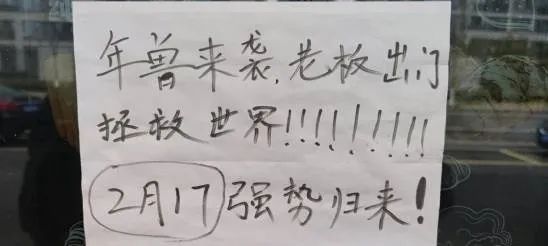 年兽来袭,老板出门
拯救世界!!!!!!!!!
2月17强势归来!